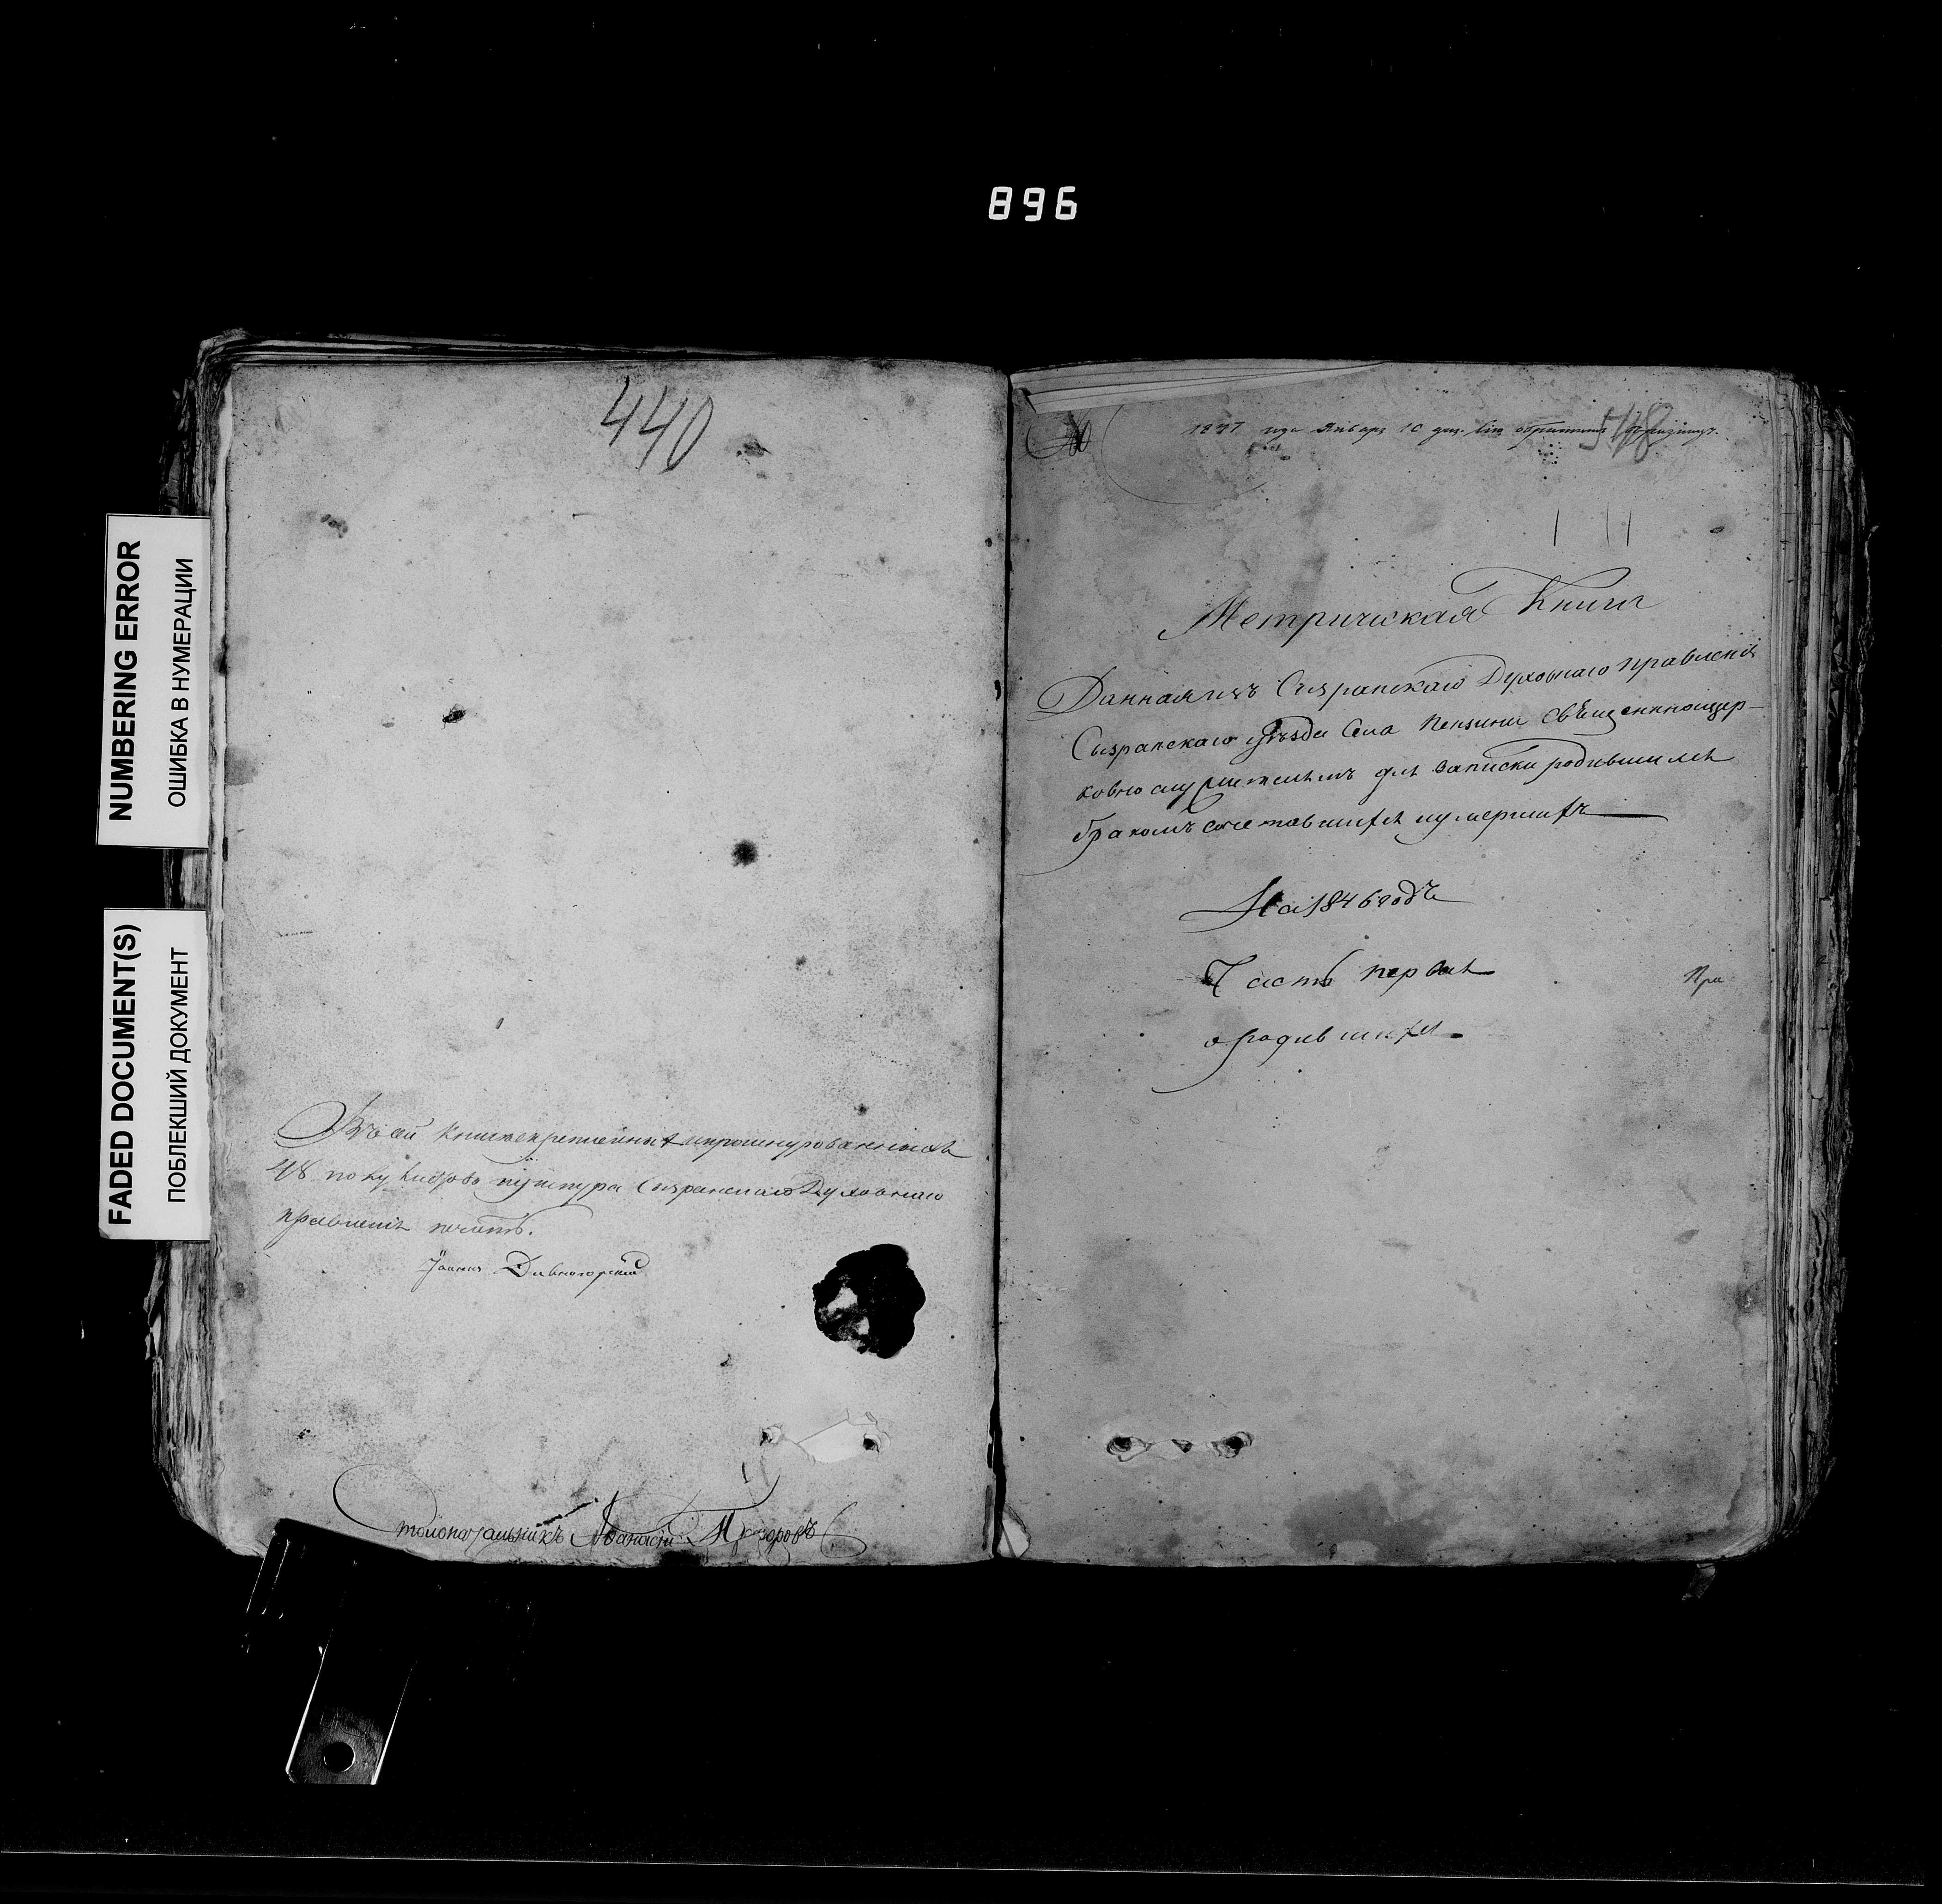 896
NUMBERING ERROR
ОШИБКА В НУМЕРАЦИИ
FADED DOCUMENT(S)
ПОБЛЕКШИЙ ДОКУМЕНТ
440
Въ сей книге скрепленныхъ и прошнурованныхъ
48 по ку шнура Сызранскаго Духовнаго
правленія печать.
Іоаннъ Дивногорскій
Столоначальникъ Афанасій
1847 года Января 10 дня
518
Метрическая Книга
Данная изъ Сызранскаго Духовнаго правленія
Сызранскаго уѣзда Села Пензина Священноцер-
ковнослужителямъ для записки родившихся
бракомъ сочетавшихся и умершихъ
На 1846 годъ
Часть первая
Пра
о родившихся.